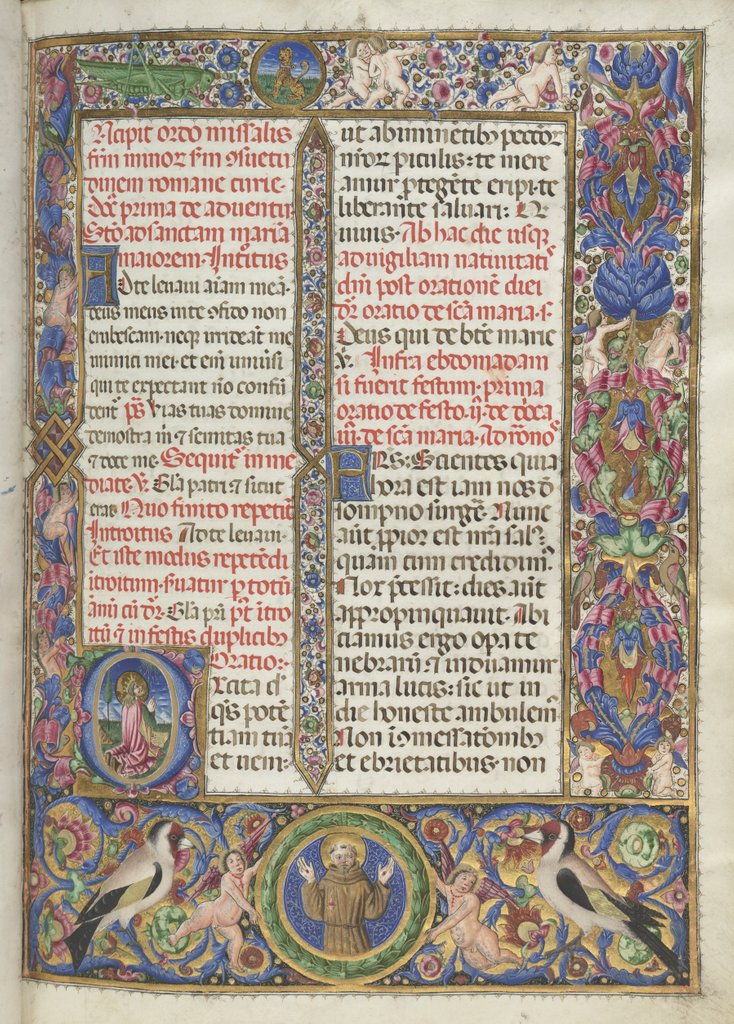 Ncipit ordo missalis
frm minor s'm ꝯsuetu
dinem romane curie·
Dn̄c prima de aduentu
Sto ad sanctam maria
maiorem· Introitus
Ad te leuaui aīam meā·
deus meus in te ꝯfido non
erubescam· neqꝫ irrideāt me
inimici mei· et eīm uniuꝰsi
qui te expectant nō confū
dent̄ ps̄ Vias tuas domine
demostra m̄ ⁊ semitas tua
⁊ doce me· Sequit̄ inme
diate V̄· Gl̄a patri ⁊ sicut
erat· Quo finito repetit̄
Introitus Ad te leuaui·
Et iste modus repetēdi
itroitum· s̄uatur p totū
annū cū dr̄· Gl̄a pri p̄t itro
itū ⁊ in festis duplicibꝫ
Oratio:·
Excita dn̄e
q̄s potē
tiam tuā
et ueni:·
ut ab iminētibꝫ peccōꝝ
nr̄oꝝ piculis: te mere
amur ptegēte eripi· te
liberāte saluari: Q
uiuis· Ab hac die usqꝫ
ad uigiliam natiuitatis
dn̄i post orationē diei
dr̄ oratio de sc̄a maria· s·
Deus qui de bt̄e marie
V̄· Infra ebdomadam
si fuerit festum· prima
oratio de festo· ij· de dn̄ca
iij· de sc̄a maria· Ad rōnos
FRS: Scientes quia
hora est iam nos d̄
sompno surgē· Nunc
aūt ppior est nr̄a sal':
quam cum credidim'·
Nox p̄cessit: dies aūt
appropinquauit· Abi
ciamus ergo opa te
nebraꝝ ⁊ induamur
arma lucis: sic ut in
die honeste ambulem'
Non ī comessatōnibꝫ
et ebrietatibus· non